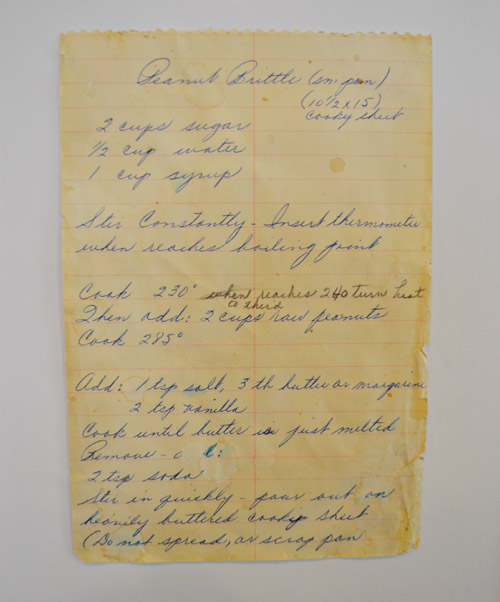 Peanut Brittle (sm pan)
(10 1/2 x 15)
cooky sheet
2 cups sugar
1/2 cup water
1 cup syrup
Stir Constantly - Insert thermometer
when reaches boiling point
Cook 230° when reaches 240 turn heat
to third
Then add: 2 cups raw peanuts
Cook 285°
Add: 1 tsp salt, 3 tb butter or margarine
2 tsp vanilla
Cook until butter is just melted
Remove -
2 tsp soda
Stir in quickly - pour out on
heavily buttered cooky sheet
(Do not spread, or scrap pan